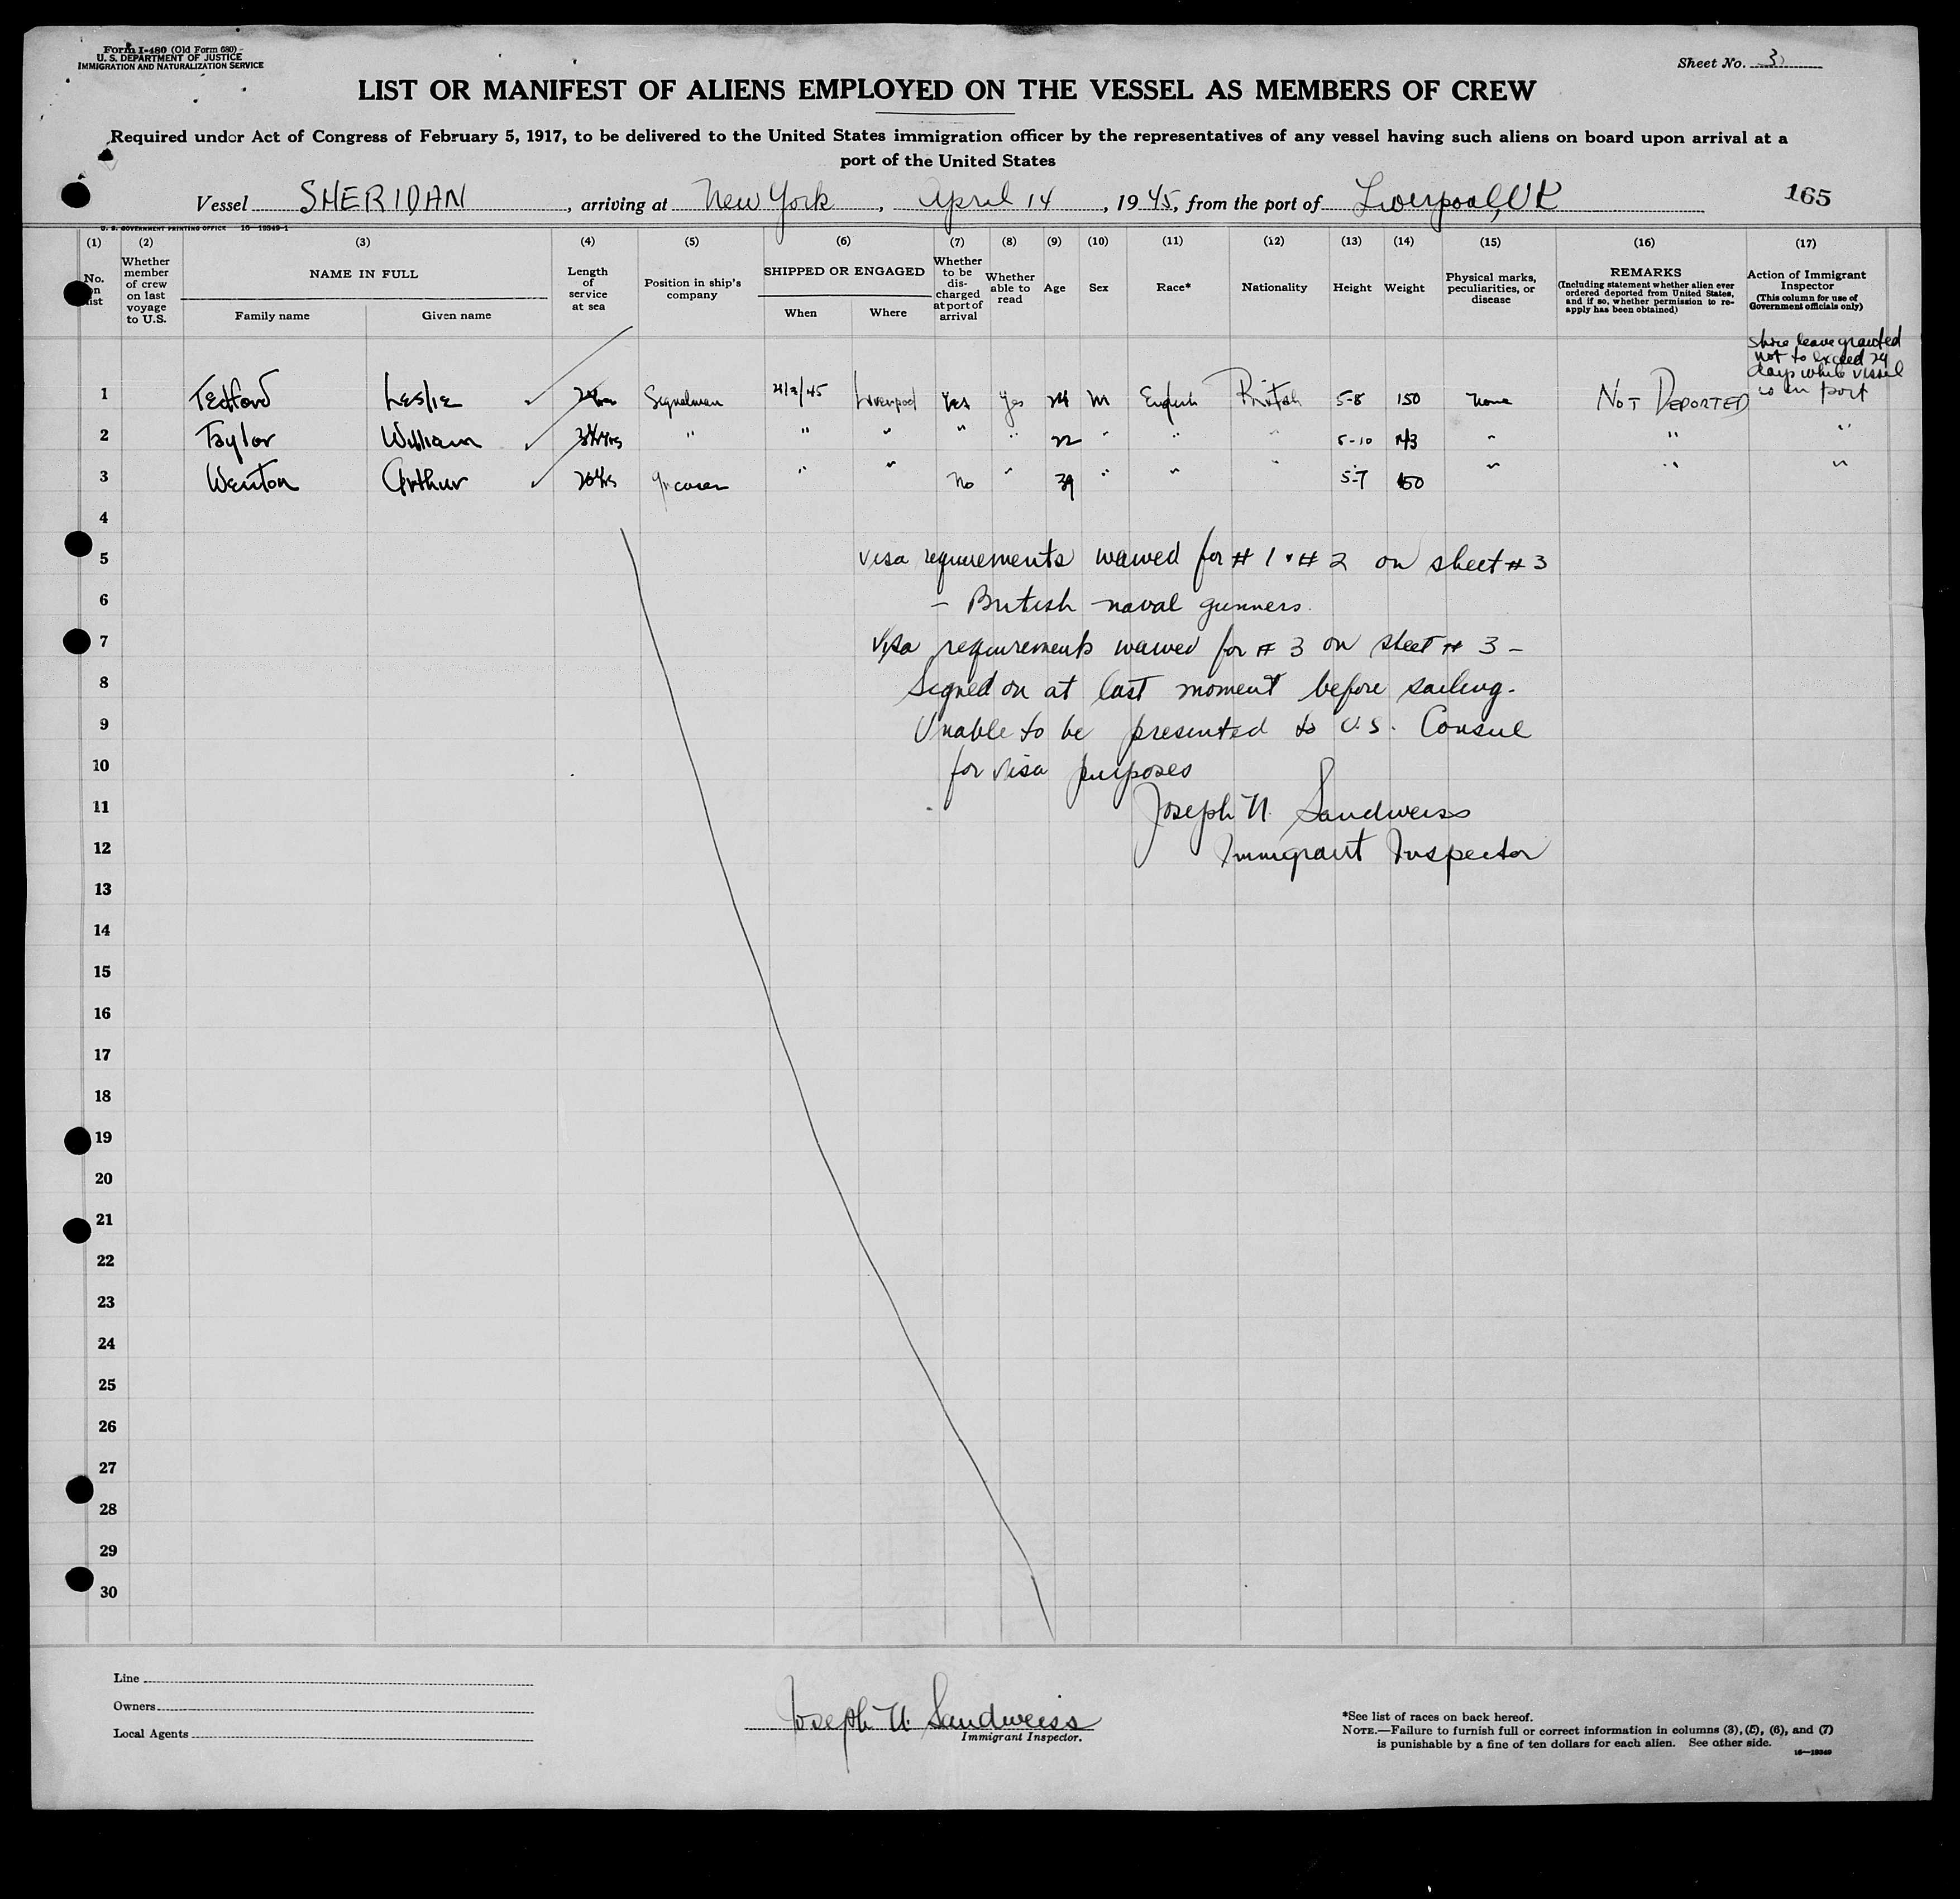 Form I-480 (Old Form 680)
U. S. DEPARTMENT OF JUSTICE
IMMIGRATION AND NATURALIZATION SERVICE
Sheet No. 3
LIST OR MANIFEST OF ALIENS EMPLOYED ON THE VESSEL AS MEMBERS OF CREW
Required under Act of Congress of February 5, 1917, to be delivered to the United States immigration officer by the representatives of any vessel having such aliens on board upon arrival at a
port of the United States
Vessel SHERIDAN, arriving at New York, April 14, 1945, from the port of Liverpool, UK
165
U. S. GOVERNMENT PRINTING OFFICE 16—19349-1
(1) (2) (3) (4) (5) (6) (7) (8) (9) (10) (11) (12) (13) (14) (15) (16) (17)
No. on list
Whether member of crew on last voyage to U.S.
NAME IN FULL
Family name
Given name
Length of service at sea
Position in ship's company
SHIPPED OR ENGAGED
When
Where
Whether to be discharged at port of arrival
Whether able to read
Age
Sex
Race*
Nationality
Height
Weight
Physical marks, peculiarities, or disease
REMARKS
(Including statement whether alien ever ordered deported from United States, and if so, whether permission to reapply has been obtained)
Action of Immigrant Inspector
(This column for use of Government officials only)
Shore leave granted
not to exceed 29
days while vessel
is in port
1 Tedford Leslie Signalman Liverpool Yes Yes 24 M English British 5-8 150 None NOT DEPORTED
2 Taylor William " " " " " 22 " " " 5-10 143 " " "
3 Wenton Arthur No " 39 " " " 5-7 150 " " "
4
5 Visa requirements waived for # 1 & # 2 on sheet # 3
6 - British naval gunners.
7 Visa requirements waived for # 3 on sheet # 3 -
8 Signed on at last moment before sailing.
9 Unable to be presented to U.S. Consul
10 for visa purposes
11 Joseph N. Sandweiss
12 Immigrant Inspector
13
14
15
16
17
18
19
20
21
22
23
24
25
26
27
28
29
30
Line
Owners
Local Agents
Joseph N. Sandweiss
Immigrant Inspector.
*See list of races on back hereof.
NOTE.—Failure to furnish full or correct information in columns (3), (5), (6), and (7)
is punishable by a fine of ten dollars for each alien. See other side.
16—19349